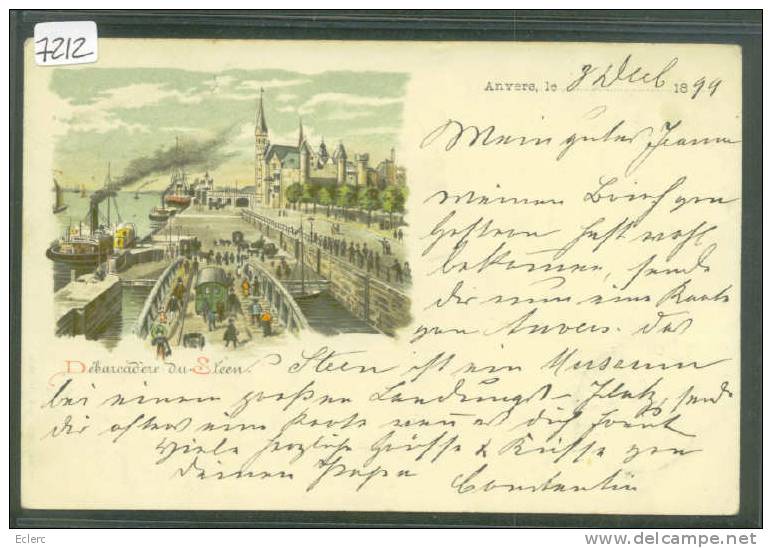 7212
Anvers, le 3 Dec 1899
Mein gutes Jeanne
meinen Brief von
Gestern hast wohl
bekommen, sende
dir nun eine Karte
von Anvers. das
Débarcadère du Steen. Steen ist ein Museum
bei einem großen Landungs-Platz, sende
dir öfters eine Karte wenn es dich freut
Viele herzliche Grüsse & Küsse von
deinen Papa Constantin
Eclerc
http://www.delcampe.net